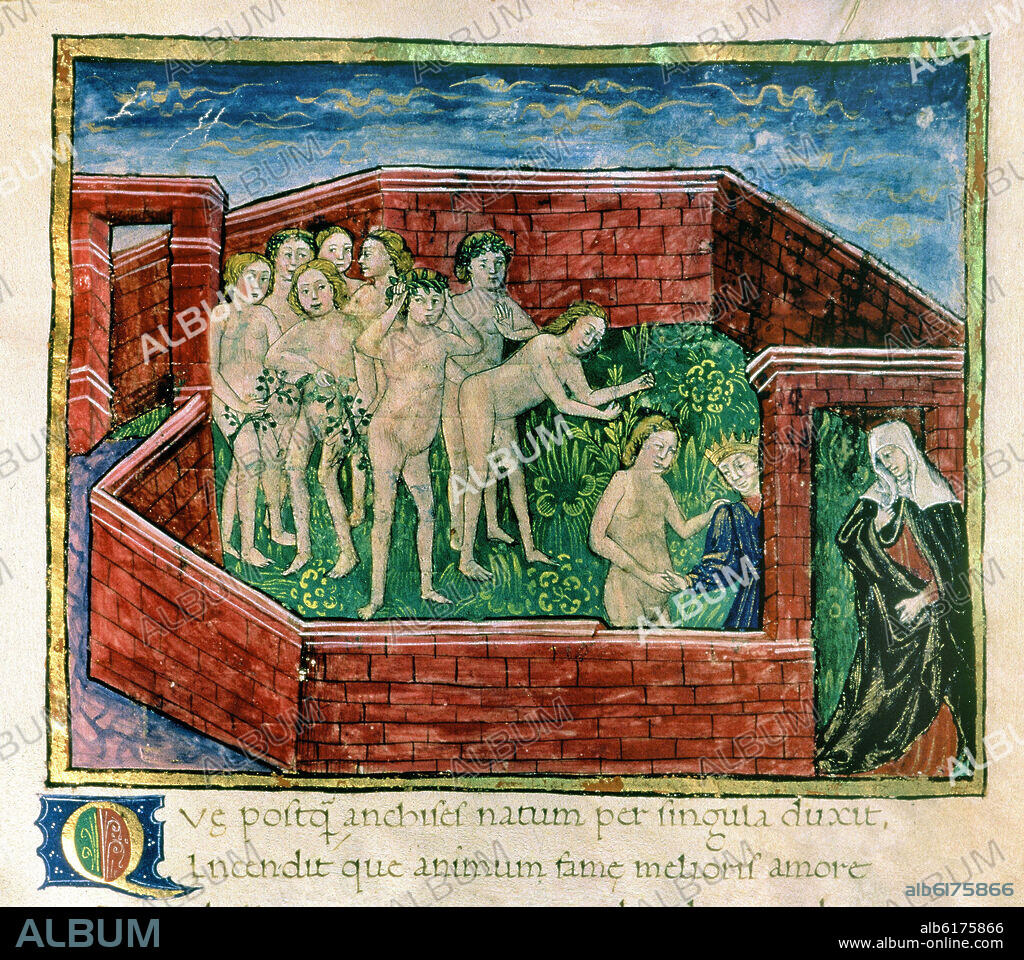 ALBUM
QVe postq̃ anchises natum per singula duxit,
Incendit que animum fame melioris amore
alb6175866
ALBUM
alb6175866
www.album-online.com